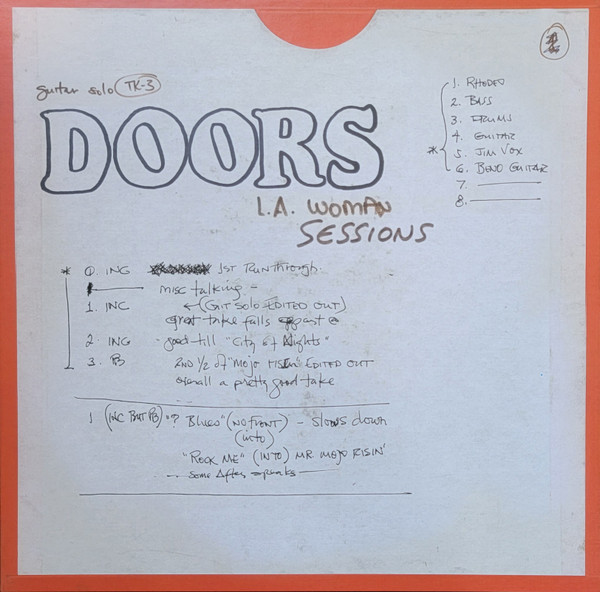 guitar solo TK-3
DOORS
L.A. WOMAN
SESSIONS
1. RHODES
2. BASS
3. DRUMS
4. GUITAR
* 5. JIM VOX
6. BEND GUITAR
7.
8.
* 0 ING 1ST RunThrough.
misc talking -
1. INC ← (GIT SOLO EDITED OUT)
great take falls apart @
2. ING - good till "City of Nights"
3. PB 2ND 1/2 of "Mojo RISIN" EDITED OUT
overall a pretty good take
1 (INC BUT PB) "? Blues" (NO FRONT) - SLOWS down
(into)
"ROCK ME" (INTO) MR MOJO RISIN'
-- some After speaks